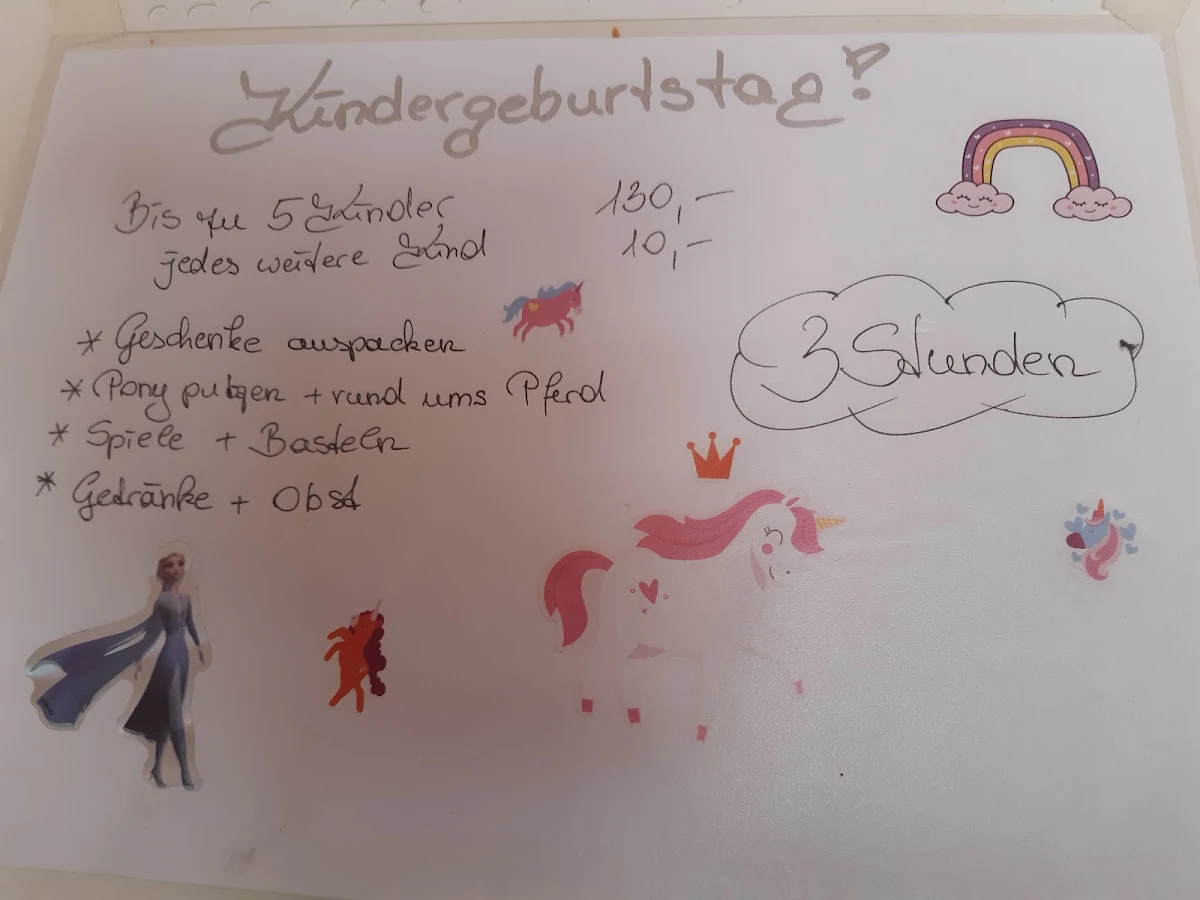 Kindergeburtstag?
Bis zu 5 Kinder 130,–
jedes weitere Kind 10,–
3 Stunden
* Geschenke auspacken
* Pony putzen + rund ums Pferd
* Spiele + Basteln
* Getränke + Obst